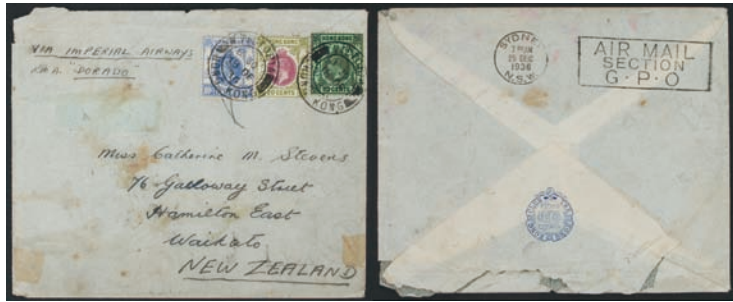 VIA IMPERIAL AIRWAYS
R.M.A. "DORADO"
HONG KONG
HONG KONG
50 CENTS
Miss Catherine M. Stevens
76 Galloway Street
Hamilton East
Waikato
NEW ZEALAND
SYDNEY
25 DEC
1936
N.S.W.
AIR MAIL
SECTION
G.P.O